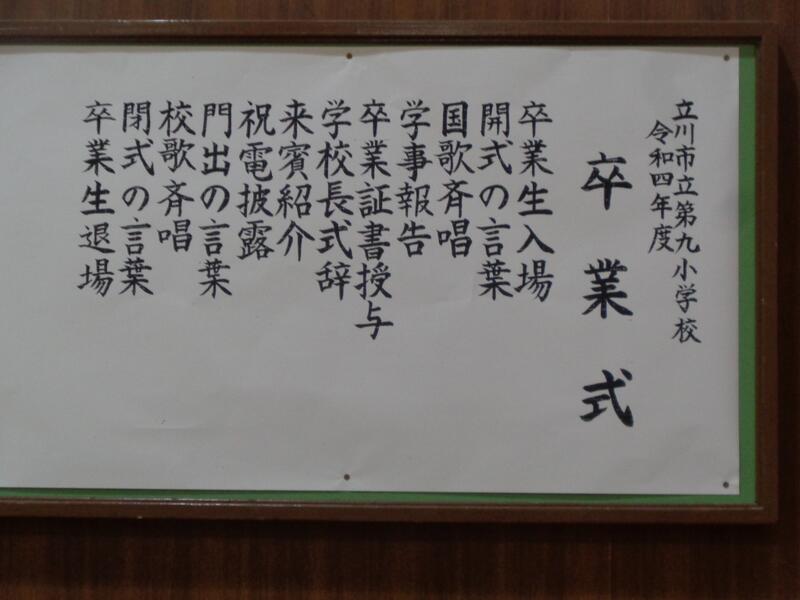 立川市立第九小学校
令和四年度
卒業式
卒業生入場
開式の言葉
国歌斉唱
学事報告
卒業証書授与
学校長式辞
来賓紹介
祝電披露
門出の言葉
校歌斉唱
閉式の言葉
卒業生退場